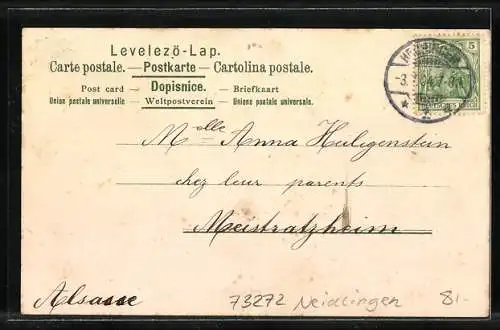 Levelezö-Lap.
Carte postale. — Postkarte — Cartolina postale.
Post card — Dopisnice. — Briefkaart
Union postale universelle — Weltpostverein — Unione postale universale.
5
Mlle Anna Heiligenstein
chez leur parents
Meistratzheim
Alsace
73272 Neidlingen 81-